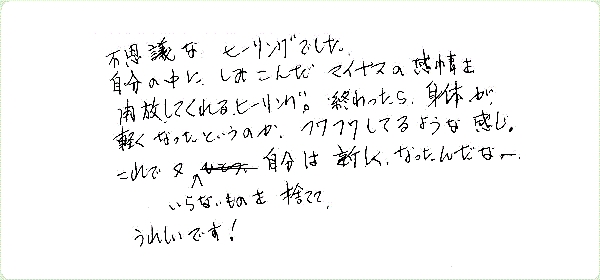 不思議な ヒーリングでした。
自分の中に、しみこんだ マイナスの感情を
開放してくれるヒーリング。終わったら、身体が、
軽くなったというのか、フワフワしてるような感じ。
これで 又 自分は 新しく、なったんだなー
いらないものを 捨てて、
うれしいです！